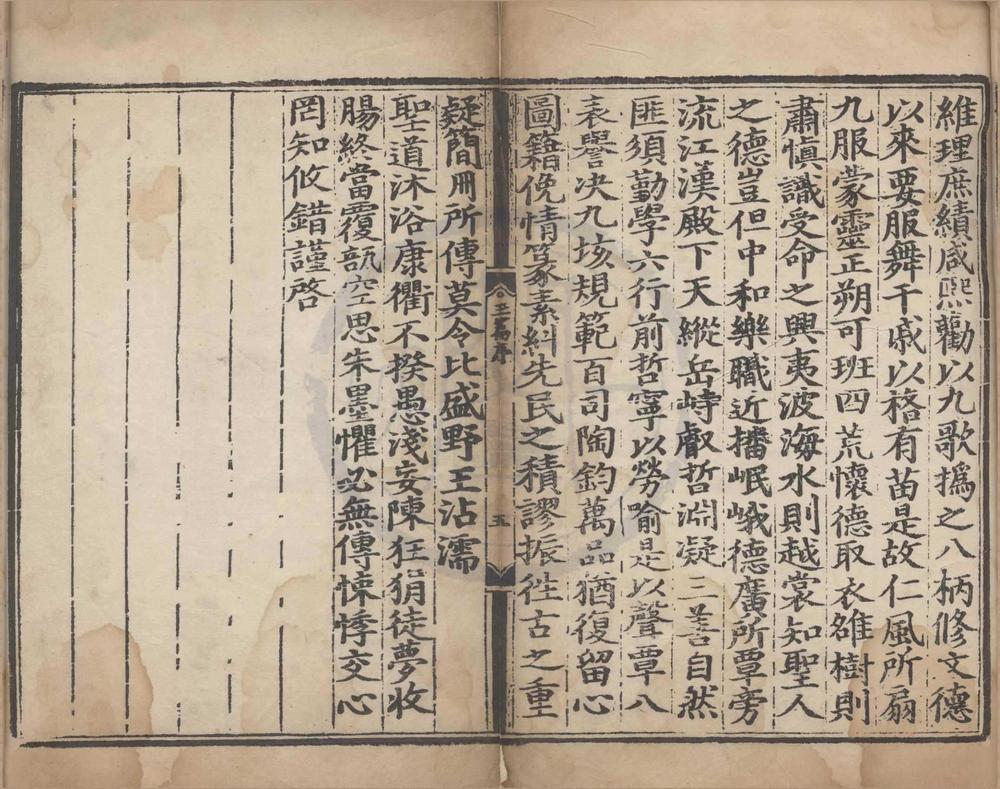 維理庶績咸熙勸以九歌撝之八柄修文德
以來要服舞干戚以格有苗是故仁風所扇
九服蒙靈正朔可班四荒懷德取衣雒樹則
肅慎識受命之興夷波海水則越裳知聖人
之德豈但中和樂職近播岷峨德廣所覃旁
流江漢殿下天縱岳峙叡哲淵凝三善自然
匪須勤學六行前哲寧以勞喻是以聲覃八
表譽决九垓規範百司陶鈞萬品猶復留心
圖籍俛情篆素糾先民之積謬振徃古之重
王萹序
五
疑簡冊所傳莫令比盛野王沾濡
聖道沐浴康衢不揆愚淺妄陳狂狷徒夢收
腸終當覆瓿空思朱墨懼必無傳悚悸交心
罔知攸錯謹啓